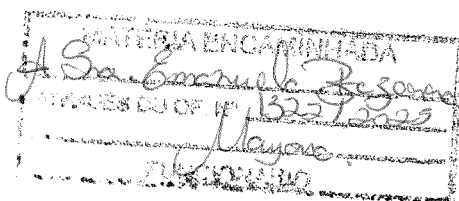 MATÉRIA ENCAMINHADA
A Sra. Emanuela Bezerra
ATRAVÉS DO OF. Nº 1322/2023
Mayara
FUNCIONÁRIO